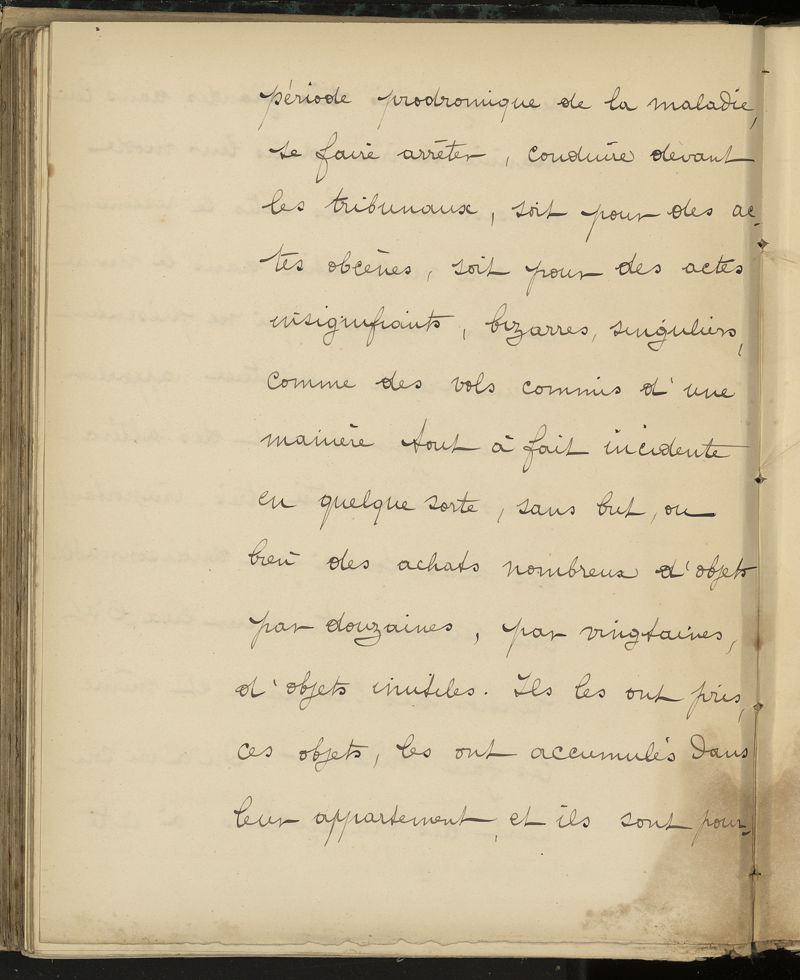 période prodromique de la maladie,
se faire arrêter, conduire devant
les tribunaux, soit pour des ac-
tes obcènes, soit pour des actes
insignifiants, bizarres, singuliers,
comme des vols commis d'une
manière tout à fait incidente
en quelque sorte, sans but, ou
bien des achats nombreux d'objets
par douzaines, par vingtaines,
d'objets inutiles. Ils les ont pris,
ces objets, les ont accumulés dans
leur appartement, et ils sont pour-